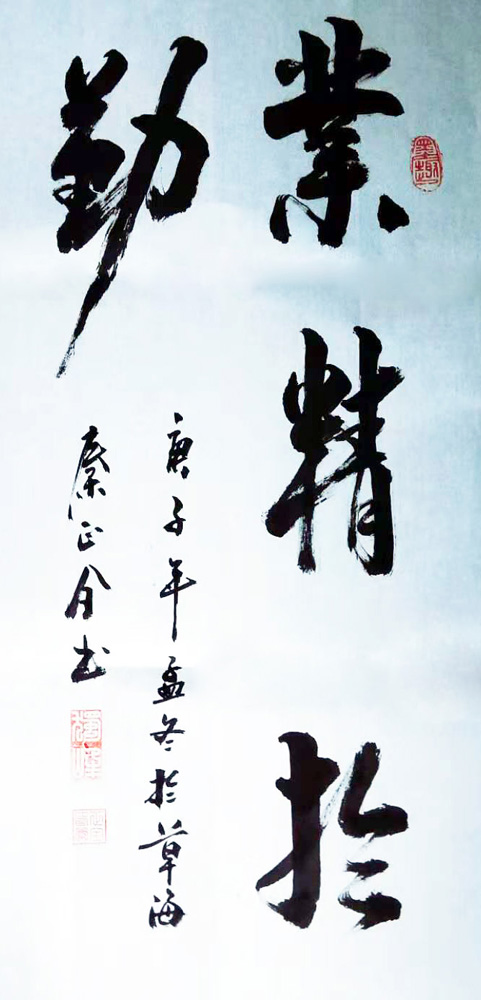 業精於
勤
庚子年孟冬於草海
秦正全书